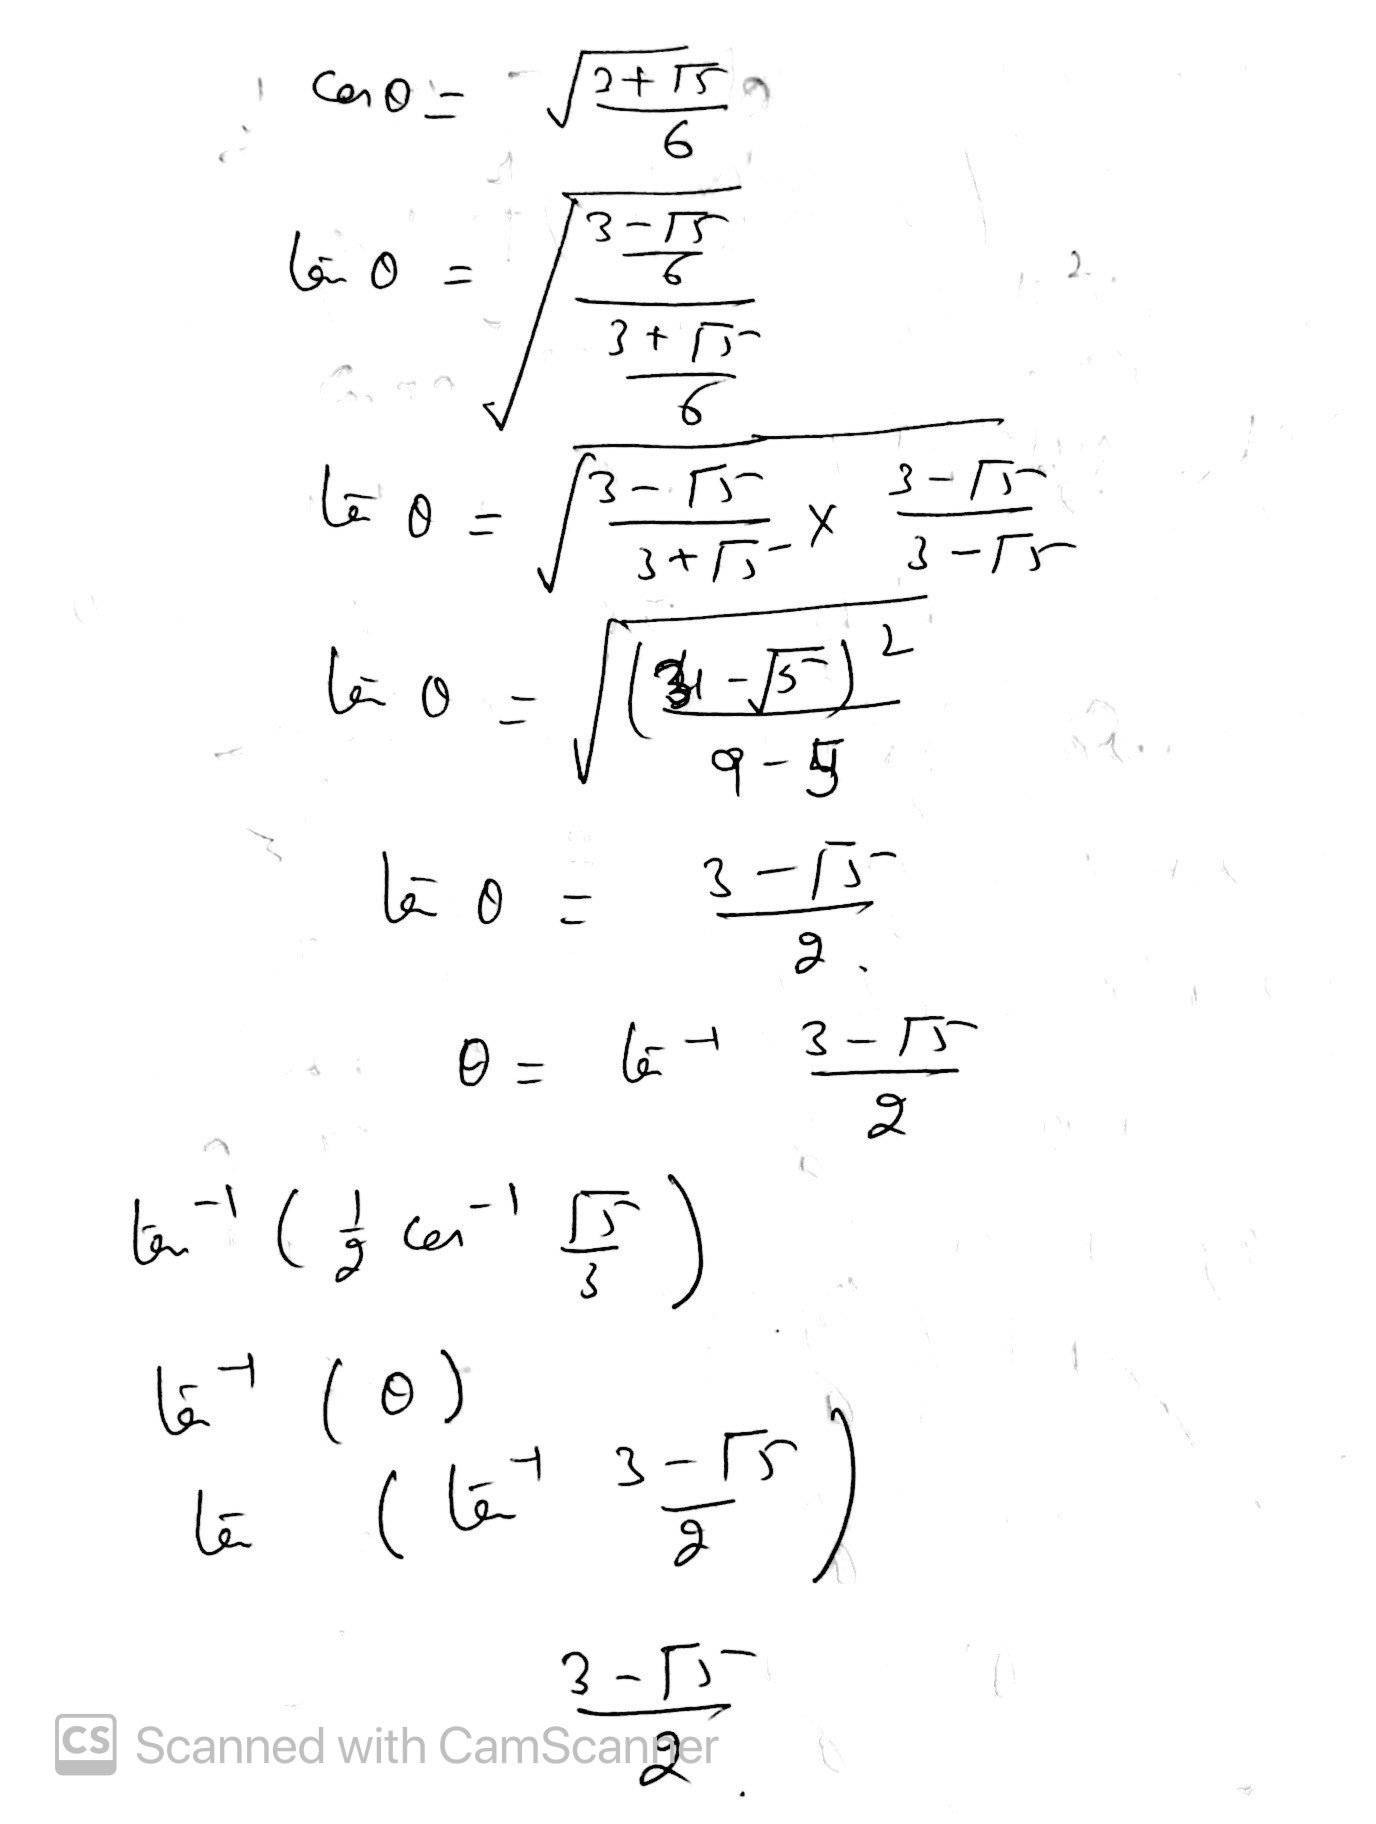 cos θ = √((3+√5)/6)
tan θ = √(((3-√5)/6)/((3+√5)/6))
tan θ = √((3-√5)/(3+√5) × (3-√5)/(3-√5))
tan θ = √((3-√5)²/(9-5))
tan θ = (3-√5)/2.
θ = tan⁻¹ (3-√5)/2
tan⁻¹ (1/2 cos⁻¹ √5/3)
tan⁻¹ (θ)
tan (tan⁻¹ (3-√5)/2)
(3-√5)/2.
CS Scanned with CamScanner